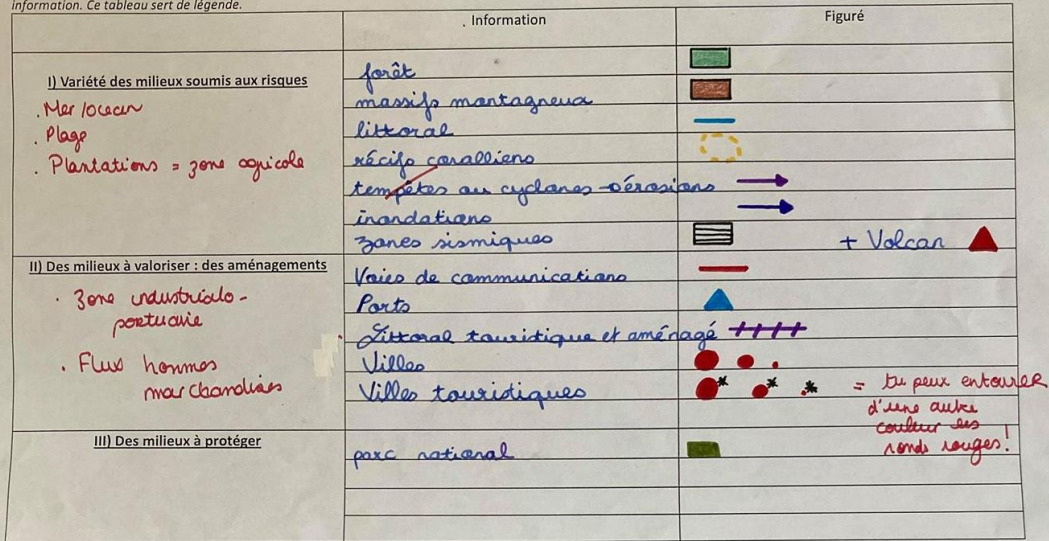 information. Ce tableau sert de légende.
. Information
Figuré
I) Variété des milieux soumis aux risques
. Mer/ocean
. Plage
. Plantations = zone agricole
forêt
massifs montagneux
littoral
récifs coralliens
tempêtes ou cyclones → érosions
inondations
zones sismiques
+ Volcan
II) Des milieux à valoriser : des aménagements
. Zone industrialo-
portuaire
. Flux hommes
marchandises
Voies de communications
Ports
Littoral touristique et aménagé
Villes
Villes touristiques
= tu peux entourer
d'une autre
couleur les
ronds rouges!
III) Des milieux à protéger
parc national